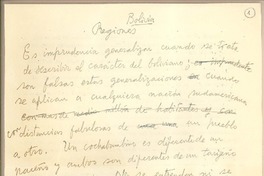 Bolivia
1
Regiones
Es imprudencia generalizar cuando se trate
de describir el carácter del boliviano y es imprudente
son falsas estas generalizaciones cuando
se aplican a cualquiera nación sudamericana
con distancias fabulosas de un pueblo
a otro. Un cochabambino es diferente de un
paceño y ambos son diferentes de un tarijeño
No se entienden ni se